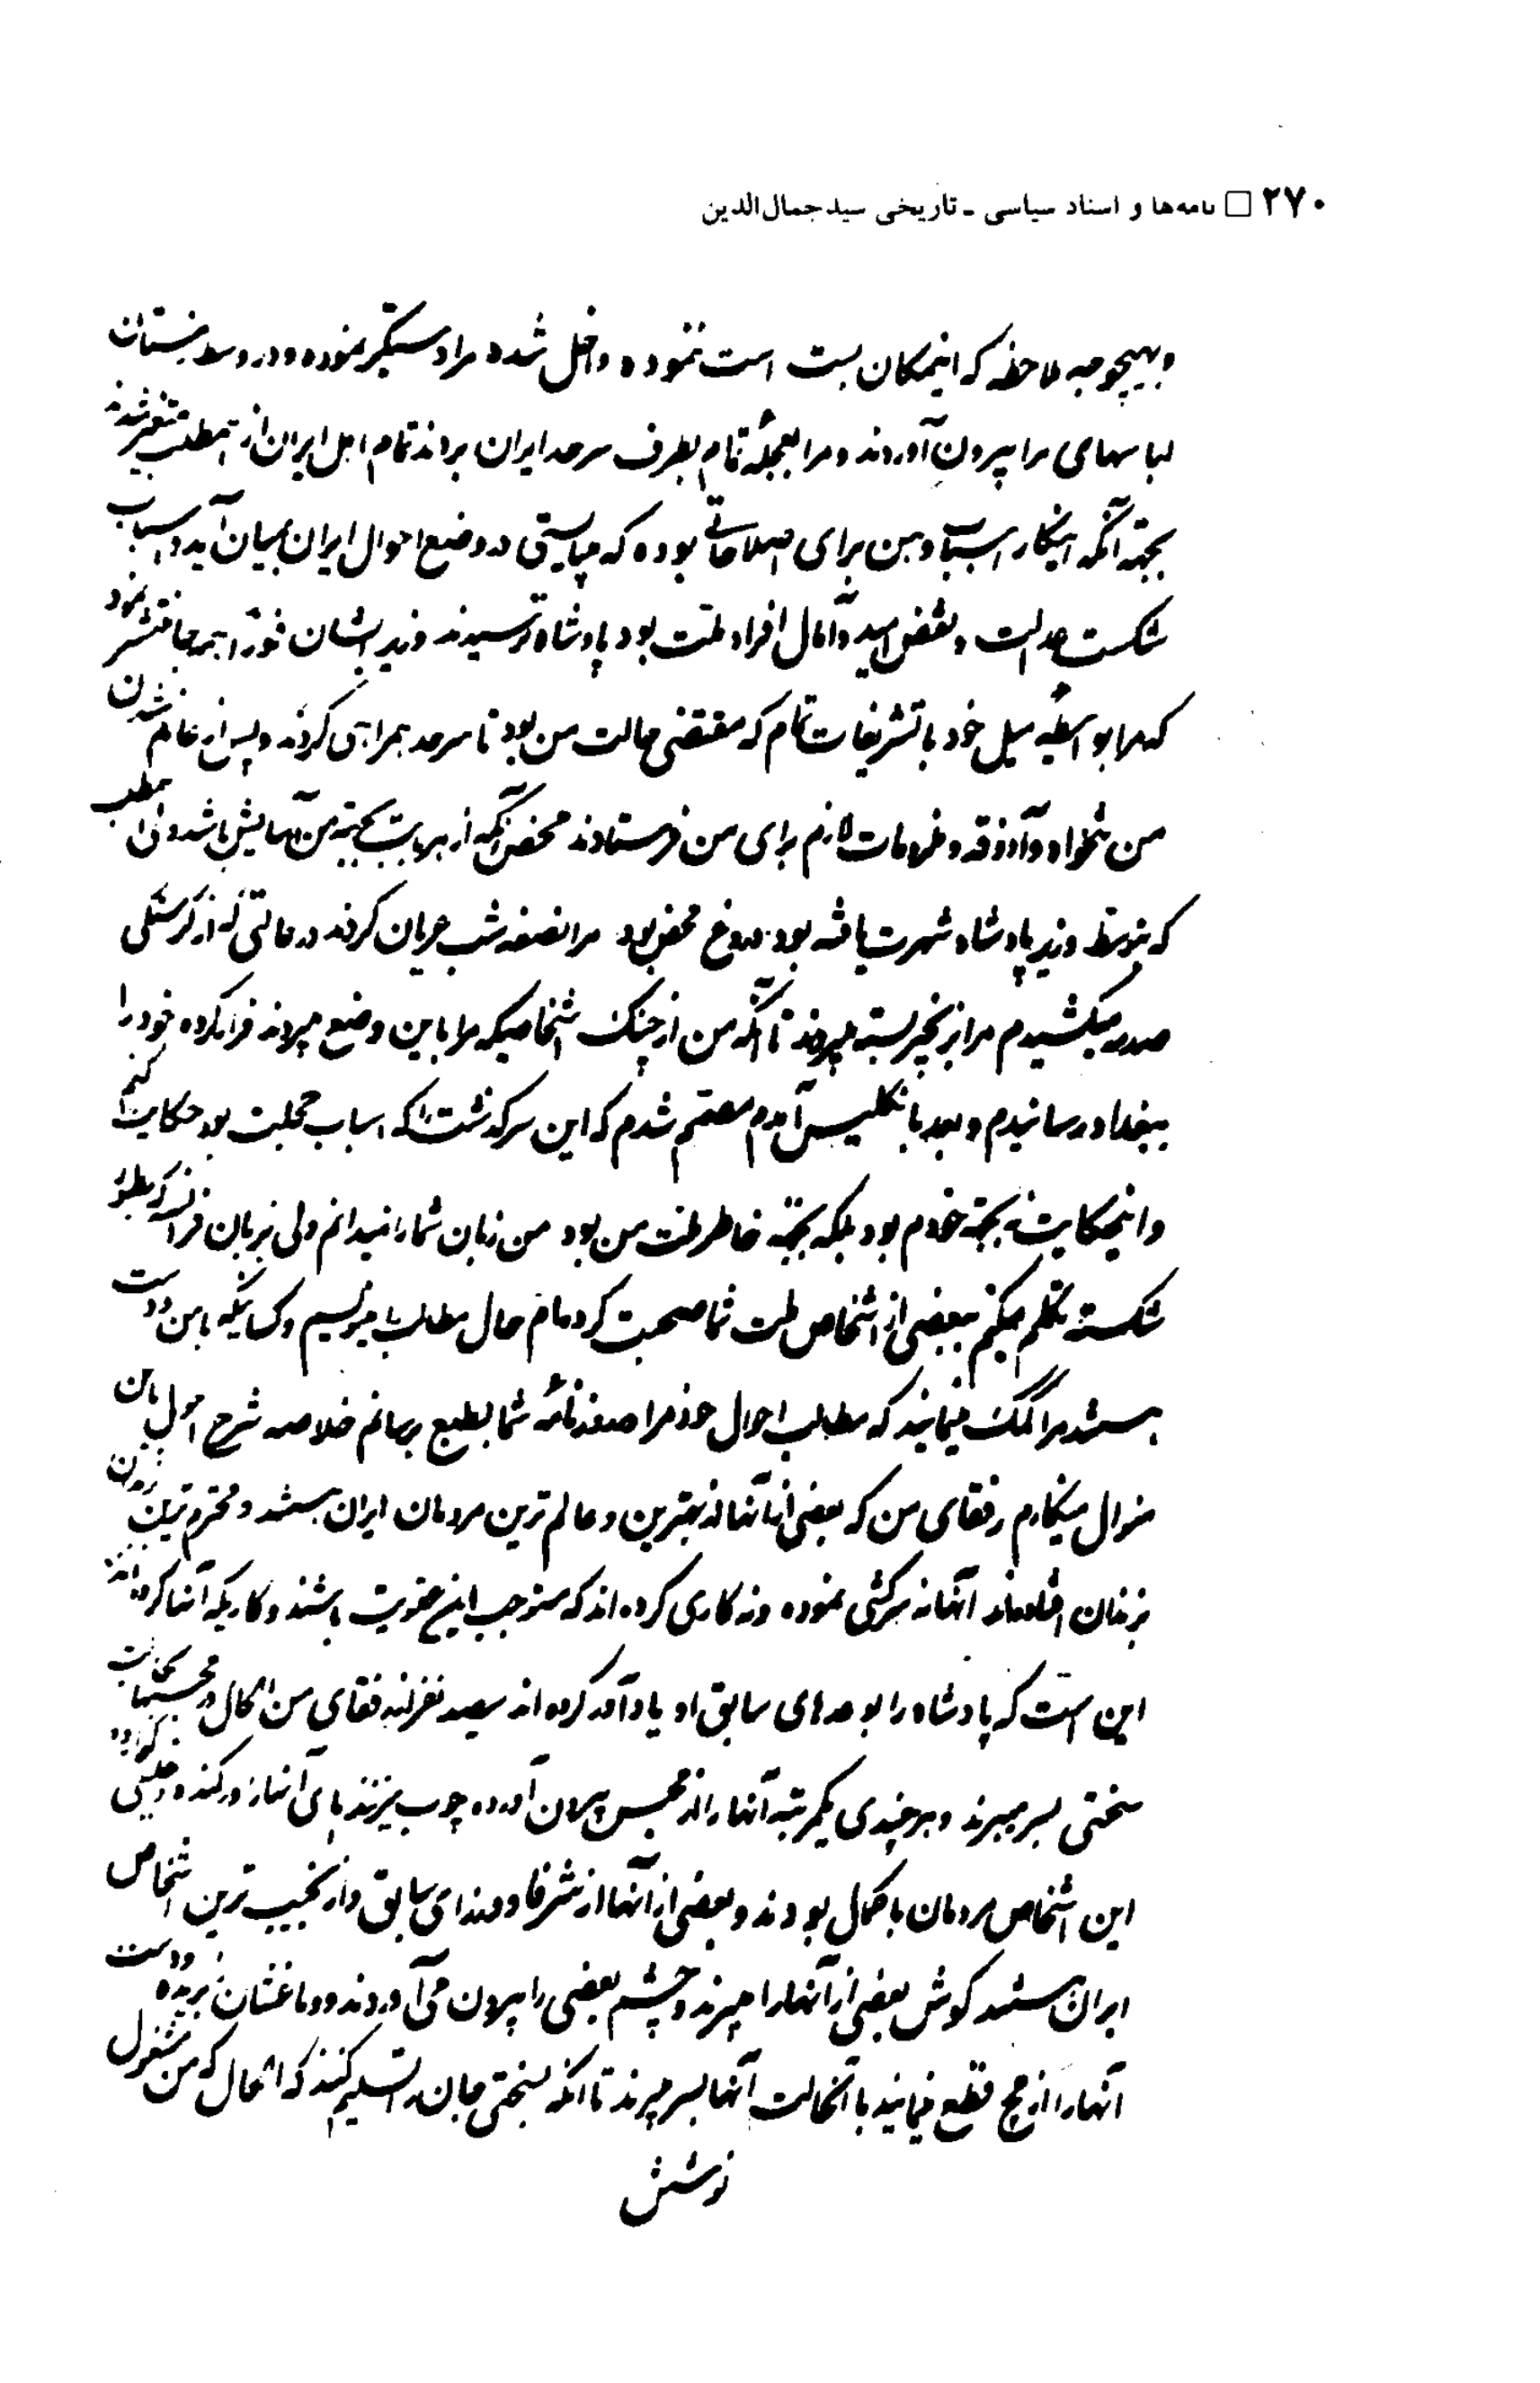 ۲۷۰ □ نامه‌ها و اسناد سیاسی ـ تاریخی سید جمال‌الدین
وبهیچوجه ملاحظه که اینمکان بست است ننموده داخل شده مرا دستگیر نموده و در وسط زمستان
لباسهای مرا بیرون آوردند و مرا بعجلهٔ تمام بطرف سرحد ایران بردند تمام اهل ایران از اینمطلب متغیر شدند
بجهة آنکه اینکار اسباب وهن برای اصلاحاتی بوده که میبایستی در وضع احوال ایران بمیان آید و اسباب
شکست عدالت و نقض امید و آمال افراد ملت بود پادشاه ترسیدند وزیر ایشان فوراً بهمه جا منتشر نمود
که مرا بواسطه میل خود با تشریفات تمام که مقتضی حالت من بود تا سرحد همراهی کردند و پس از عازم شدن
من تنخواه و آذوقه و ملزومات لازم برای من فرستادند محض آنکه از هر بابت بجهة من آسایش باشد ولی اینمطلب
که بتوسط وزیر پادشاه شهرت یافته بود دروغ محض بود مرا نصفه شب عریان کردند در حالتی که از گرسنگی
صدمه میکشیدم مرا بزنجیر بسته میبردند تا آنکه من از چنگ اشخاصیکه مرا باین وضع میبردند فرار کرده خود را
ببغداد رسانیدم و بعد بانگلیس آمدم مصمم شدم که این سرگذشت را که اسباب خجلت بود حکایت کنم
و اینحکایت نه بجهة خودم بود بلکه بجهة خاطر ملت من بود من زبان شما را نمیدانم ولی بزبان فرانسه که بطور
شکسته تکلم میکنم ببعضی از اشخاص ملت شما صحبت کرده‌ام حال مطلب را مینویسم و کسانیکه با من دوست
هستند مرا کمک مینمایند که مطالب احوال خود را در روزنامهٔ شما بطبع برسانم خلاصه شرح احوال بابت
منوال مینگارم رفقای من که بعضی از آنها از بهترین و عالم ترین مردمان ایران هستند و محترم ترین
بزندان افتاده‌اند آنها نه سرکشی نموده و نه کاری کرده‌اند که مستوجب این عقوبت باشند و کاریکه آنها کرده‌اند
این است که پادشاه را بوعدهای سابق او یادآور کرده‌اند سیصد نفر از رفقای من الحال در محبسهای
سختی بسر میبرند و هر چندی یکمرتبه آنها را از محبس بیرون آورده چوب میزنند پای آنها را در کند
این اشخاص مردمان با کمال بودند و بعضی از آنها از شرفا و وزرای سابق و از نجیب ترین اشخاص
ایران هستند گوش بعضی از آنها را میبرند و چشم بعضی را بیرون می‌آوردند و دماغشان بریده و دست
آنها را از مچ قطع مینمایند باینحالت آنها بسر میبرند تا آنکه بسختی جان را تسلیم کنند که الحال که من مشغول
نوشتن